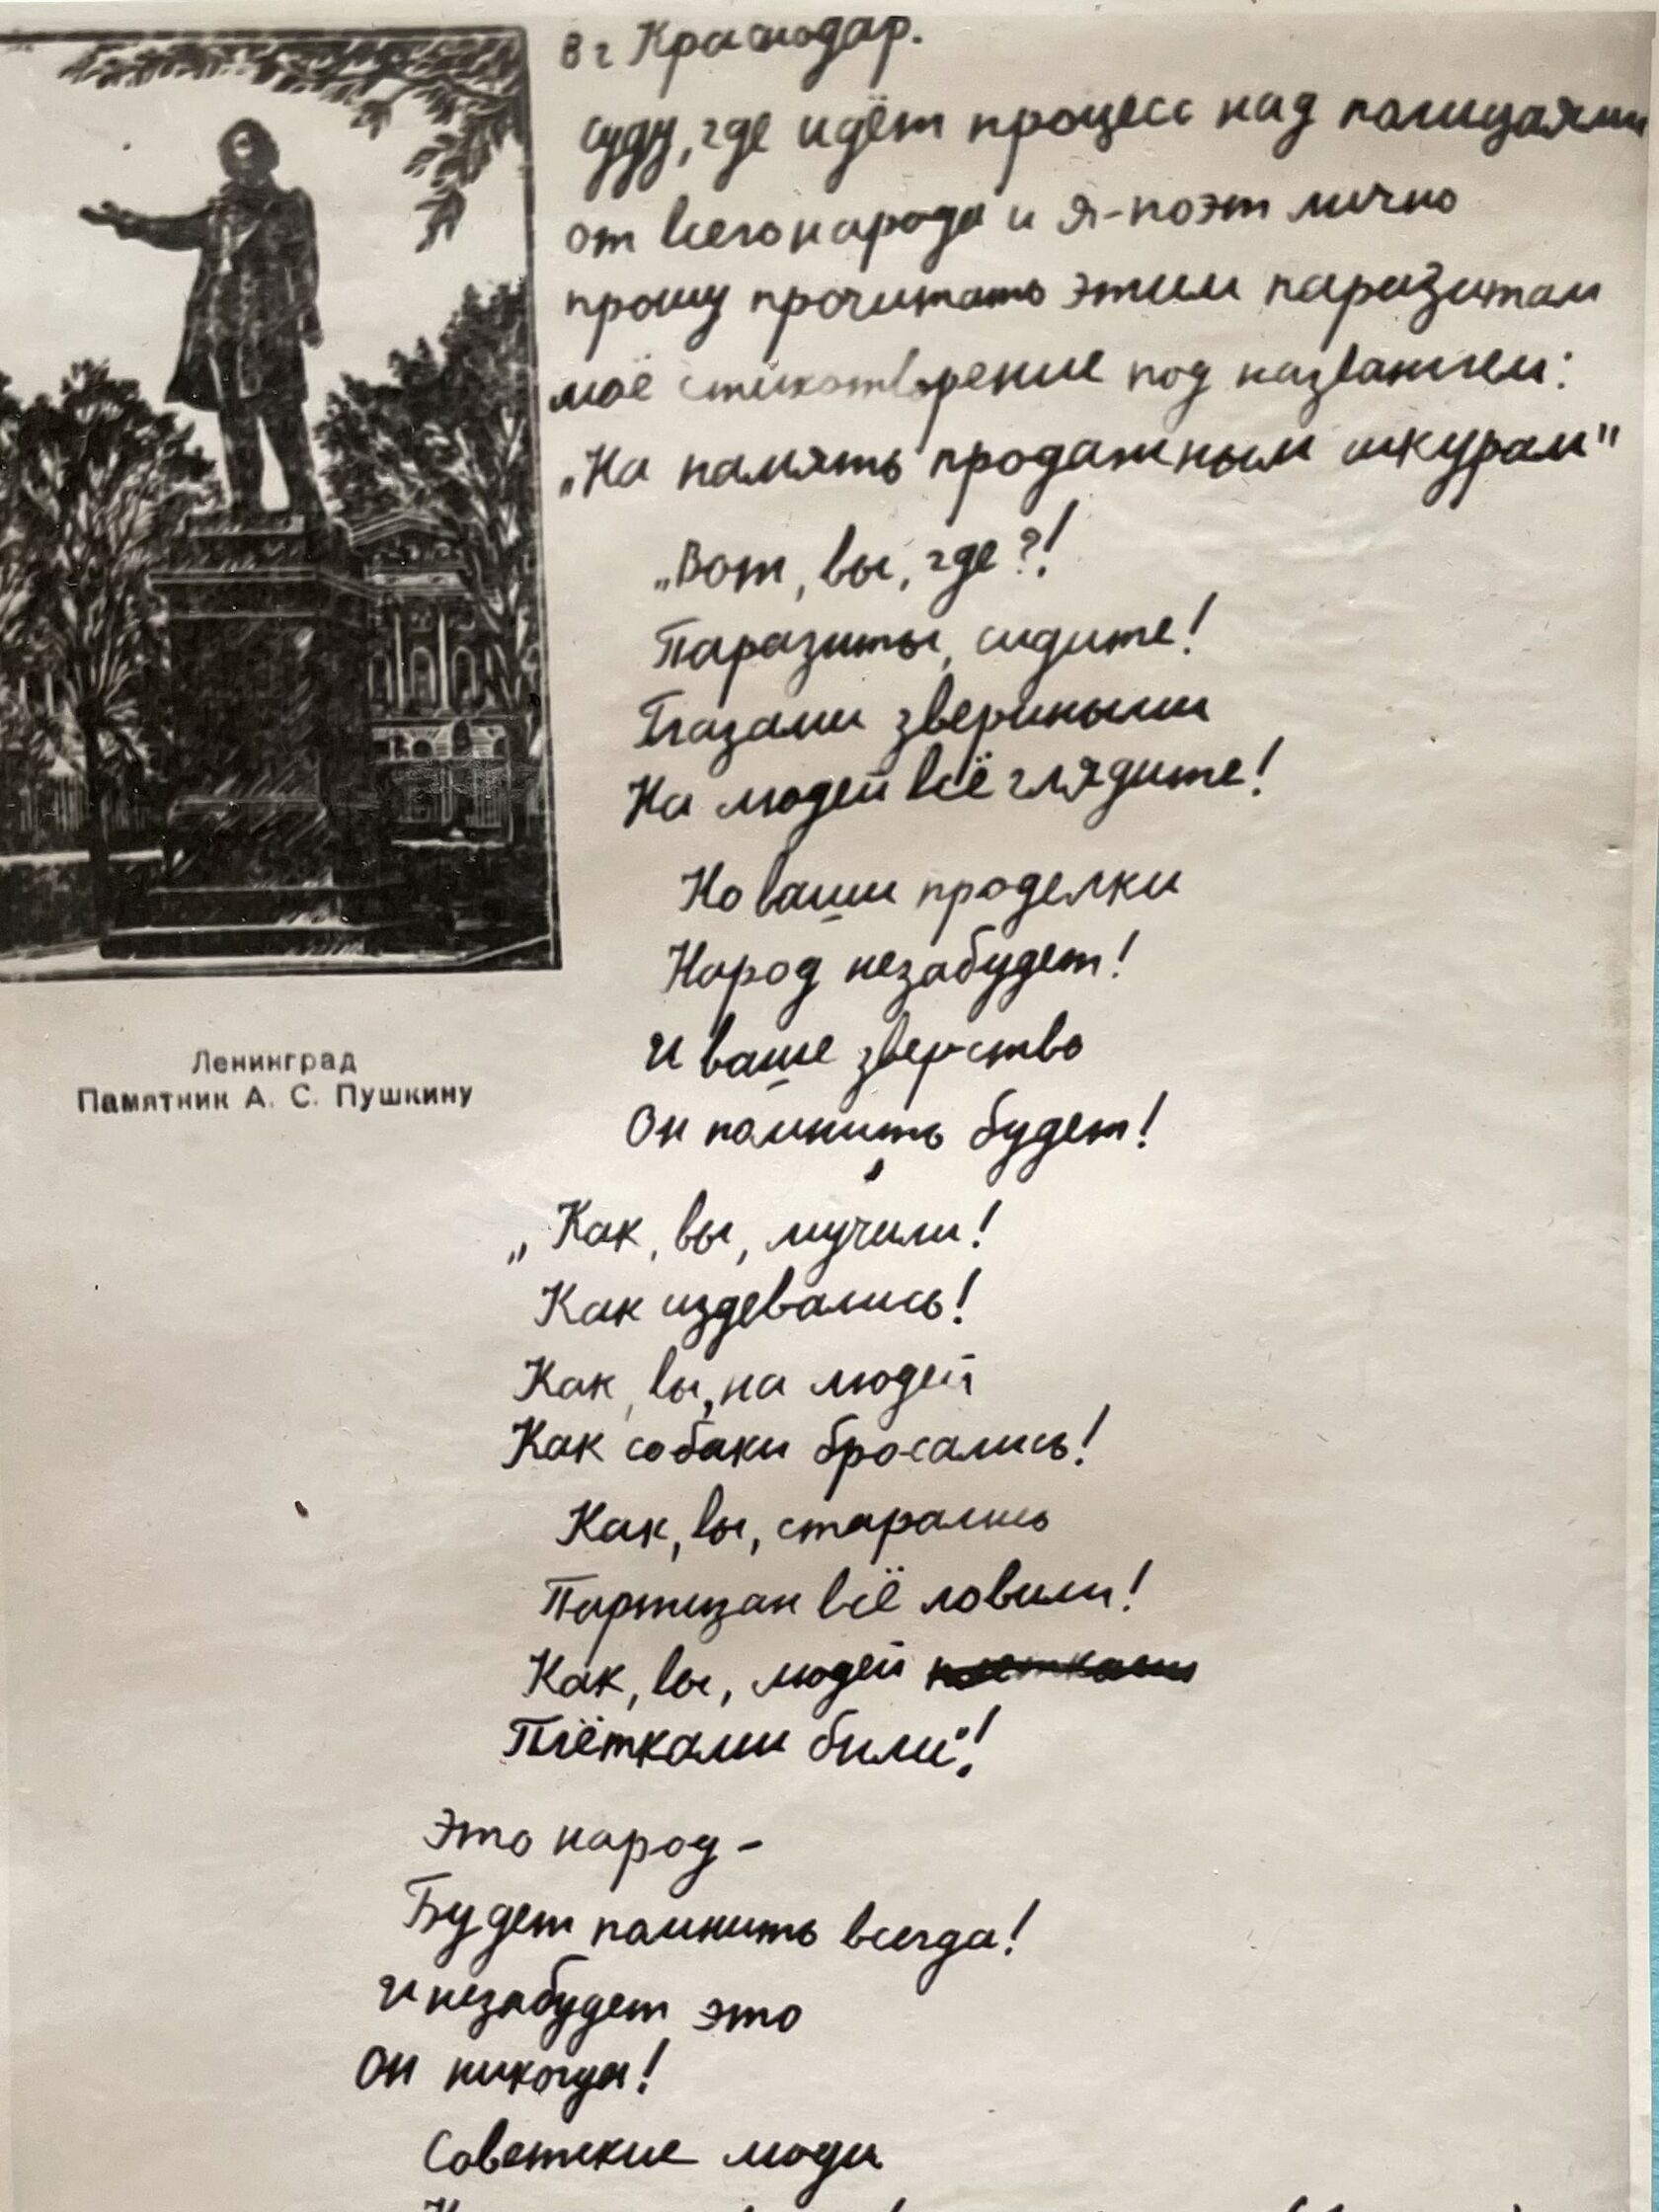 в г Краснодар.
суду, где идёт процесс над полицаями
от всего народа и я-поэт лично
прошу прочитать этим паразитам
моё стихотворение под названием:
„На память продажным шкурам"
„Вот, вы, где?!
Паразиты, сидите!
Глазами звериными
На людей всё глядите!
Но ваши проделки
Народ незабудет!
И ваше зверство
Он помнить будет!
Ленинград
Памятник А. С. Пушкину
„Как, вы, мучили!
Как издевались!
Как, вы, на людей
Как собаки бросались!
Как, вы, старались
Партизан всё ловили!
Как, вы, людей
Плётками били"!
Это народ -
Будет помнить всегда!
И незабудет это
Он никогда!
Советские люди